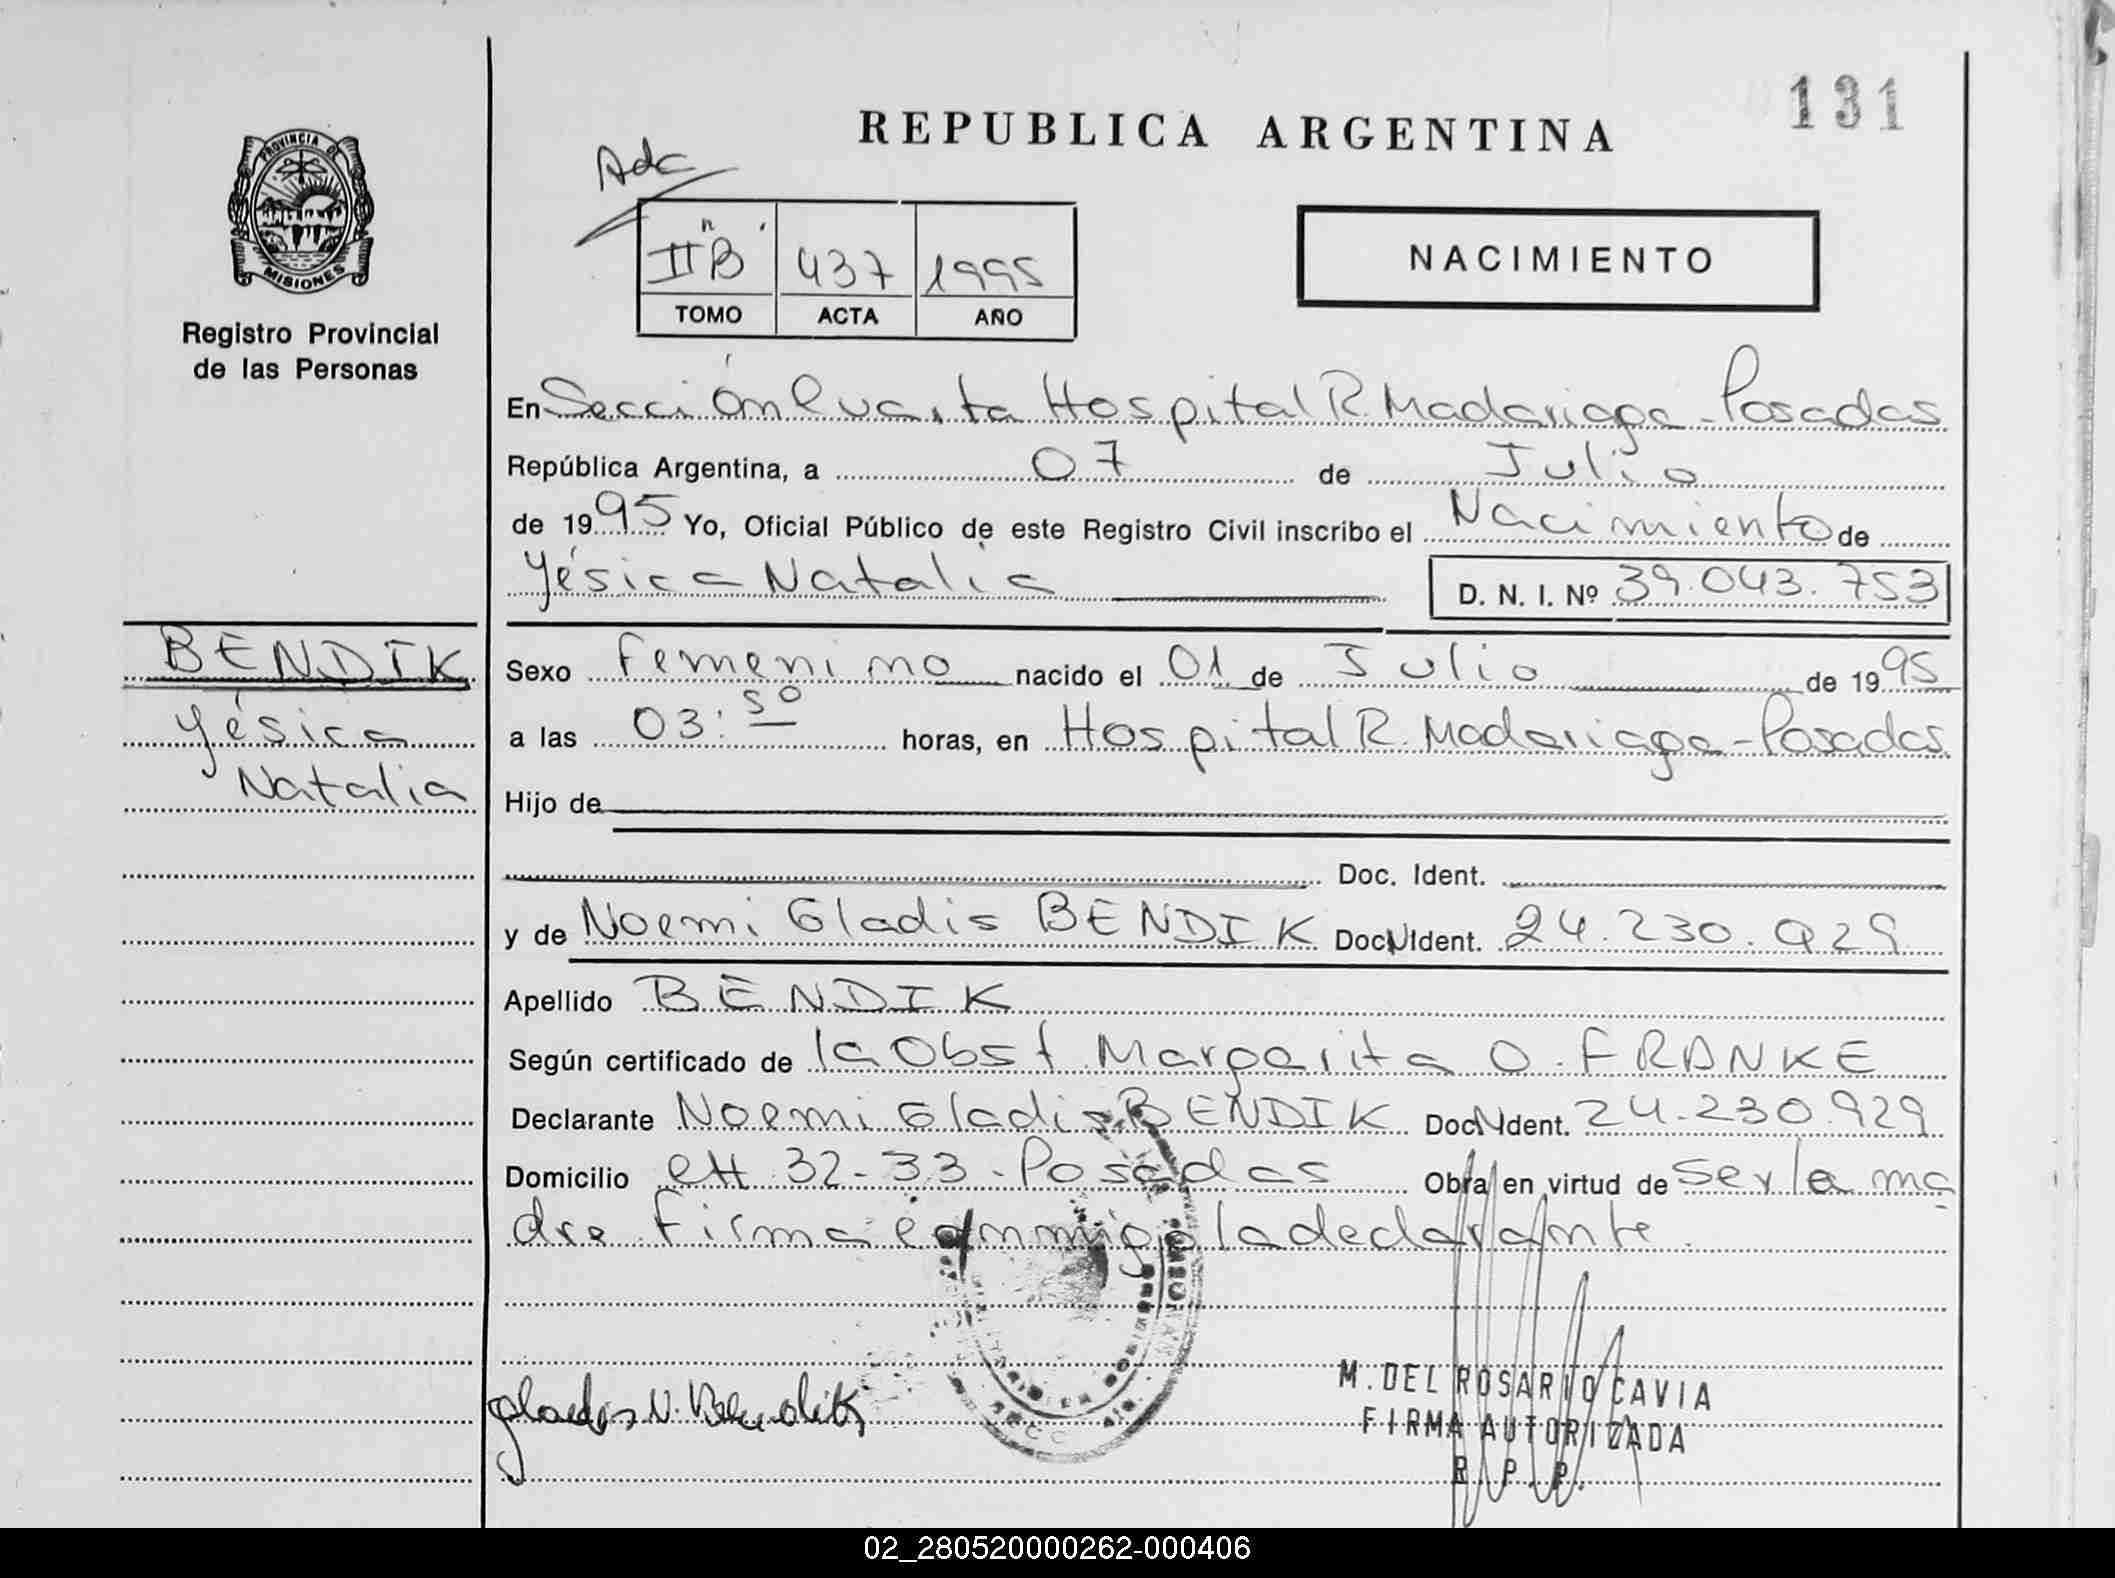 131
REPUBLICA ARGENTINA
PROVINCIA DE
MISIONES
Registro Provincial
de las Personas
Adc
II B 437 1995
TOMO ACTA AÑO
NACIMIENTO
En Sección Cuarta Hospital R. Madariaga - Posadas
República Argentina, a 07 de Julio
de 1995 Yo, Oficial Público de este Registro Civil inscribo el Nacimiento de
Yésica Natalia D. N. I. Nº 39.043.753
BENDIK
Yésica
Natalia
Sexo Femenino nacido el 01 de Julio de 1995
a las 03:50 horas, en Hospital R. Madariaga - Posadas
Hijo de
Doc. Ident.
y de Noemi Gladis BENDIK Doc. Ident. 24.230.929
Apellido BENDIK
Según certificado de la Obst Margarita O. FRANKE
Declarante Noemi Gladis BENDIK Doc. Ident. 24.230.929
Domicilio 32-33 - Posadas Obra en virtud de ser la ma
dre Firma conmigo la declarante.
Gladis N. Bendik
M. DEL ROSARIO CAVIA
FIRMA AUTORIZADA
R. P. P.
02_280520000262-000406